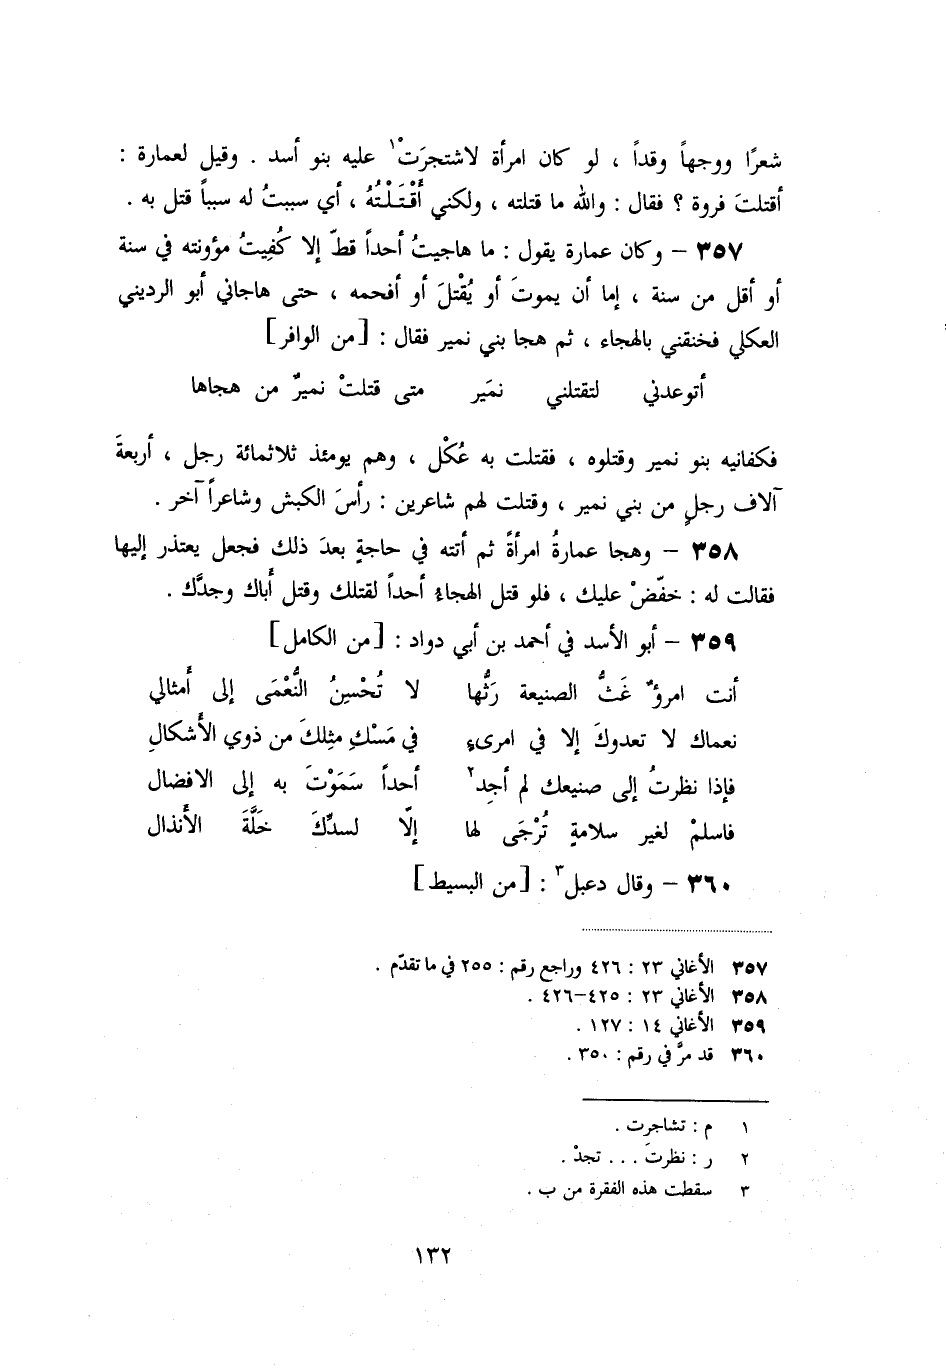 شعرًا ووجهاً وقداً ، لو كان امرأة لاشتجرَتْ١ عليه بنو أسد . وقيل لعمارة :
أقتلتَ فروة ؟ فقال : والله ما قتلته ، ولكني أَقْتَلْتُهُ ، أي سببتُ له سبباً قتل به .
٣٥٧ – وكان عمارة يقول : ما هاجيتُ أحداً قطّ إلا كُفِيتُ مؤونته في سنة
أو أقل من سنة ، إما أن يموتَ أو يُقْتلَ أو أفحمه ، حتى هاجاني أبو الرديني
العكلي فخنقني بالهجاء ، ثم هجا بني نمير فقال : [من الوافر]
أتوعدني لتقتلني نمَير متى قتلتْ نميرٌ من هجاها
فكفانيه بنو نمير وقتلوه ، فقتلت به عُكْل ، وهم يومئذ ثلاثمائة رجل ، أربعةَ
آلاف رجلٍ من بني نمير ، وقتلت لهم شاعرين : رأسَ الكبش وشاعراً آخر .
٣٥٨ – وهجا عمارةُ امرأةً ثم أتته في حاجةٍ بعدَ ذلك فجعل يعتذر إليها
فقالت له : خفّضْ عليك ، فلو قتل الهجاءُ أحداً لقتلك وقتل أباك وجدَّك .
٣٥٩ – أبو الأسد في أحمد بن أبي دواد : [من الكامل]
أنت امرؤٌ غَثُّ الصنيعة رَثُّها لا تُحْسِنُ النُّعْمَى إلى أَمثالي
نعماك لا تعدوكَ إلا في امرىءٍ في مَسْكِ مثِلكَ من ذوي الأَشكالِ
فإذا نظرتُ إلى صنيعك لم أجِد٢ أحداً سَمَوْتَ به إلى الافضال
فاسلمْ لغير سلامةٍ تُرْجَى لها إلّا لسدِّكَ خَلَّةَ الأَنذال
٣٦٠ – وقال دعبل٣ : [من البسيط]
٣٥٧ الأغاني ٢٣ : ٤٢٦ وراجع رقم : ٢٥٥ في ما تقدّم .
٣٥٨ الأغاني ٢٣ : ٤٢٥–٤٢٦ .
٣٥٩ الأغاني ١٤ : ١٢٧ .
٣٦٠ قد مرَّ في رقم : ٣٥٠ .
١ م : تشاجرت .
٢ ر : نظرتَ . . . تجدْ .
٣ سقطت هذه الفقرة من ب .
١٣٢